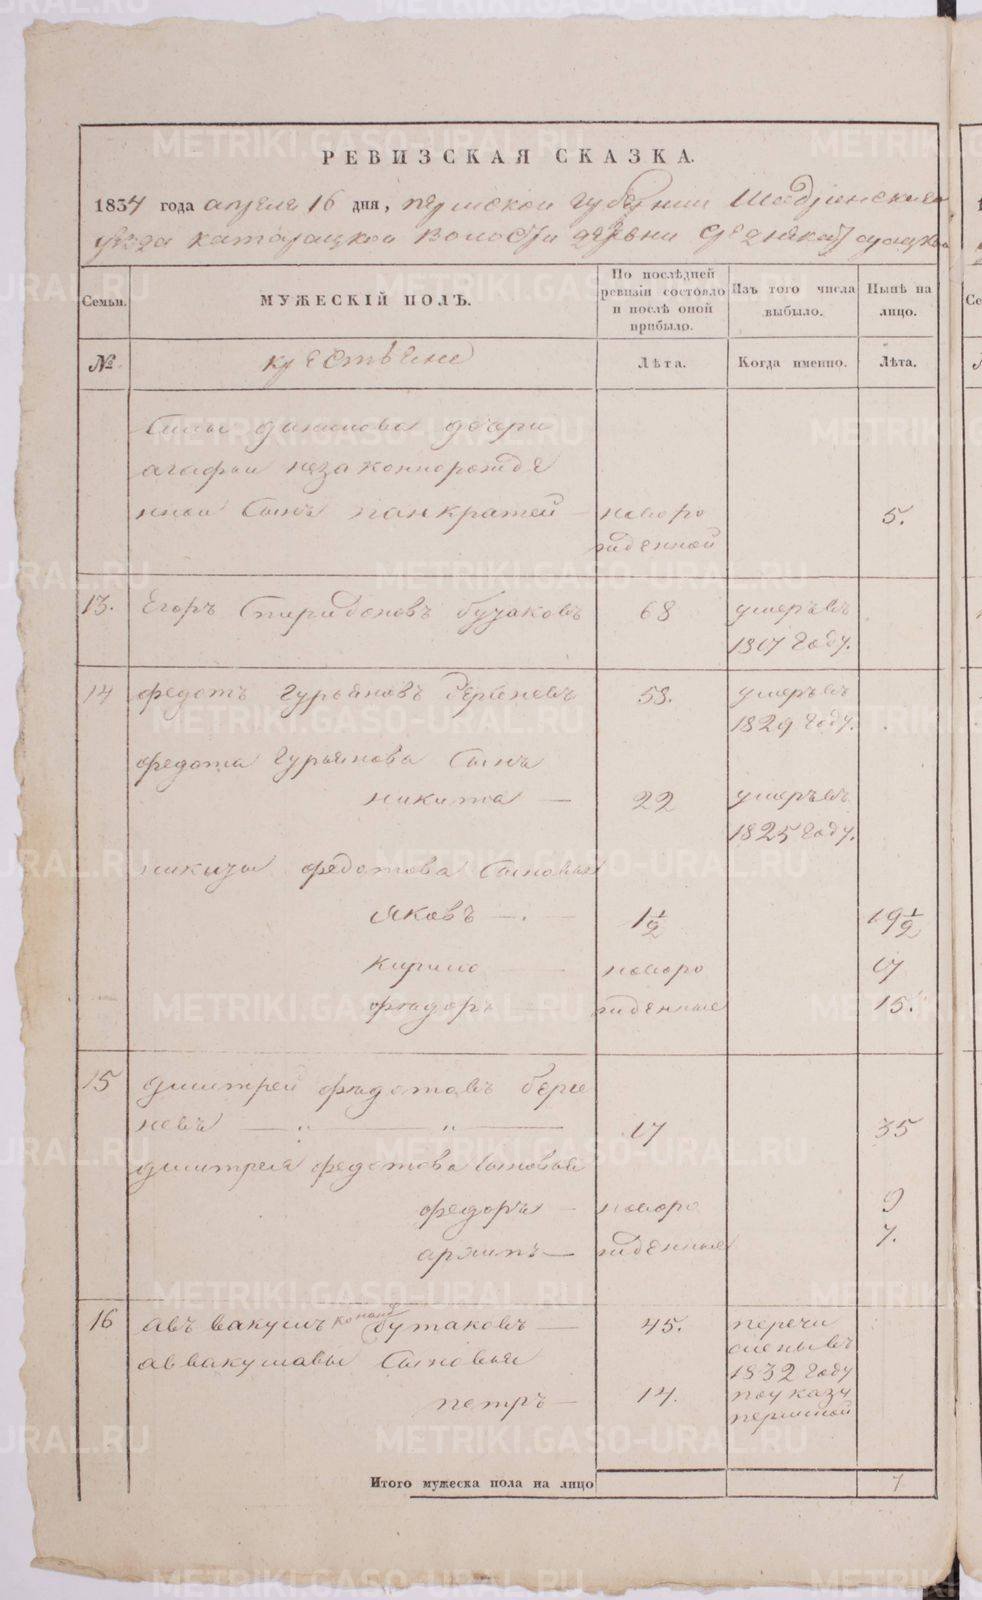 РЕВИЗСКАЯ СКАЗКА.
1834 года апреля 16 дня, пермской губернии Шадринскаго
уезда катарацкой волости деревни
Семьи. МУЖЕСКІЙ ПОЛЪ. По послѣдней ревизіи состояло и послѣ оной прибыло. Изъ того числа выбыло. Нынѣ на лицо.
№ крестьяне Лѣта. Когда именно. Лѣта.
дочери
агафьи незаконнорожде
нной сынъ панкратей новоро 5.
жденной
13. Егоръ Спиридоновъ бутаковъ 68 умеръ въ
1817 году.
14 федотъ Гурьяновъ берсеневъ 58. умеръ въ
1829 году.
федота Гурьянова сынъ
никита — 22 умеръ въ
1825 году.
никиты федотова сыновья
Яковъ — 1 1/2 19 1/2
кирило новоро 17
фядоръ жденные 15.
15 дмитрей фядотавъ берсе
невъ — „ — „ — 17 35
дмитрея федотова сыновья
федоръ — новоро 9
архипъ — жденные 7.
16 авъвакумъ бутаковъ — 45. перечи
аввакумавы сыновья сленъ въ
1832 году
петръ — 14. по указу
пермской
Итого мужеска пола на лицо 7
METRIKI.GASO-URAL.RU